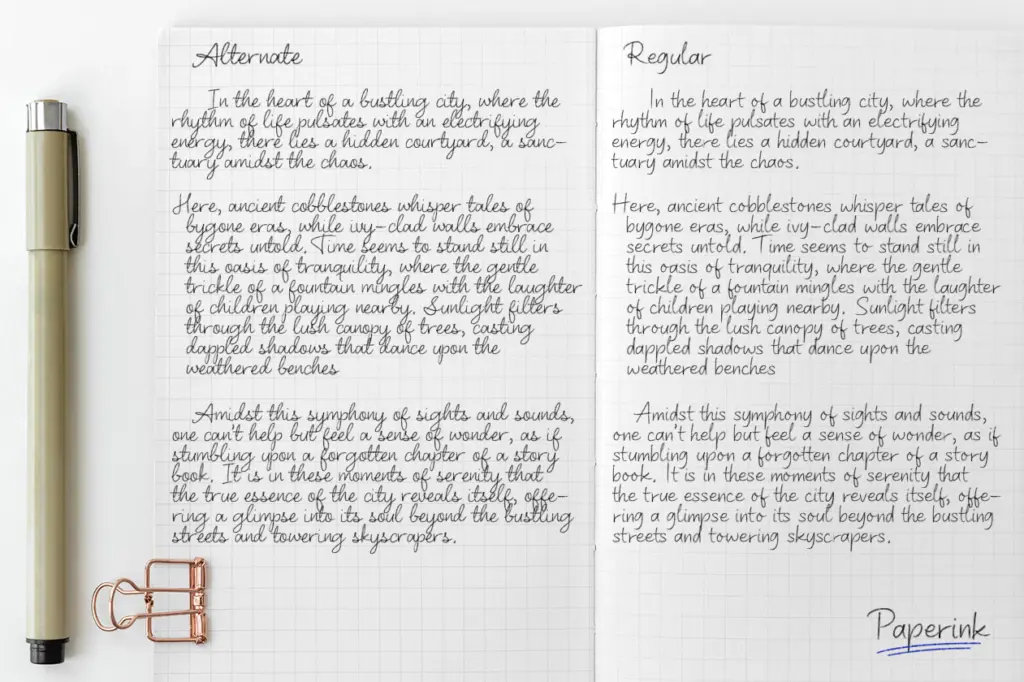 Alternate
In the heart of a bustling city, where the
rhythm of life pulsates with an electrifying
energy, there lies a hidden courtyard, a sanc-
tuary amidst the chaos.
Here, ancient cobblestones whisper tales of
bygone eras, while ivy-clad walls embrace
secrets untold. Time seems to stand still in
this oasis of tranquility, where the gentle
trickle of a fountain mingles with the laughter
of children playing nearby. Sunlight filters
through the lush canopy of trees, casting
dappled shadows that dance upon the
weathered benches
Amidst this symphony of sights and sounds,
one can't help but feel a sense of wonder, as if
stumbling upon a forgotten chapter of a story
book. It is in these moments of serenity that
the true essence of the city reveals itself, offe-
ring a glimpse into its soul beyond the bustling
streets and towering skyscrapers.
Regular
In the heart of a bustling city, where the
rhythm of life pulsates with an electrifying
energy, there lies a hidden courtyard, a sanc-
tuary amidst the chaos.
Here, ancient cobblestones whisper tales of
bygone eras, while ivy-clad walls embrace
secrets untold. Time seems to stand still in
this oasis of tranquility, where the gentle
trickle of a fountain mingles with the laughter
of children playing nearby. Sunlight filters
through the lush canopy of trees, casting
dappled shadows that dance upon the
weathered benches
Amidst this symphony of sights and sounds,
one can't help but feel a sense of wonder, as if
stumbling upon a forgotten chapter of a story
book. It is in these moments of serenity that
the true essence of the city reveals itself, offe-
ring a glimpse into its soul beyond the bustling
streets and towering skyscrapers.
Paperink